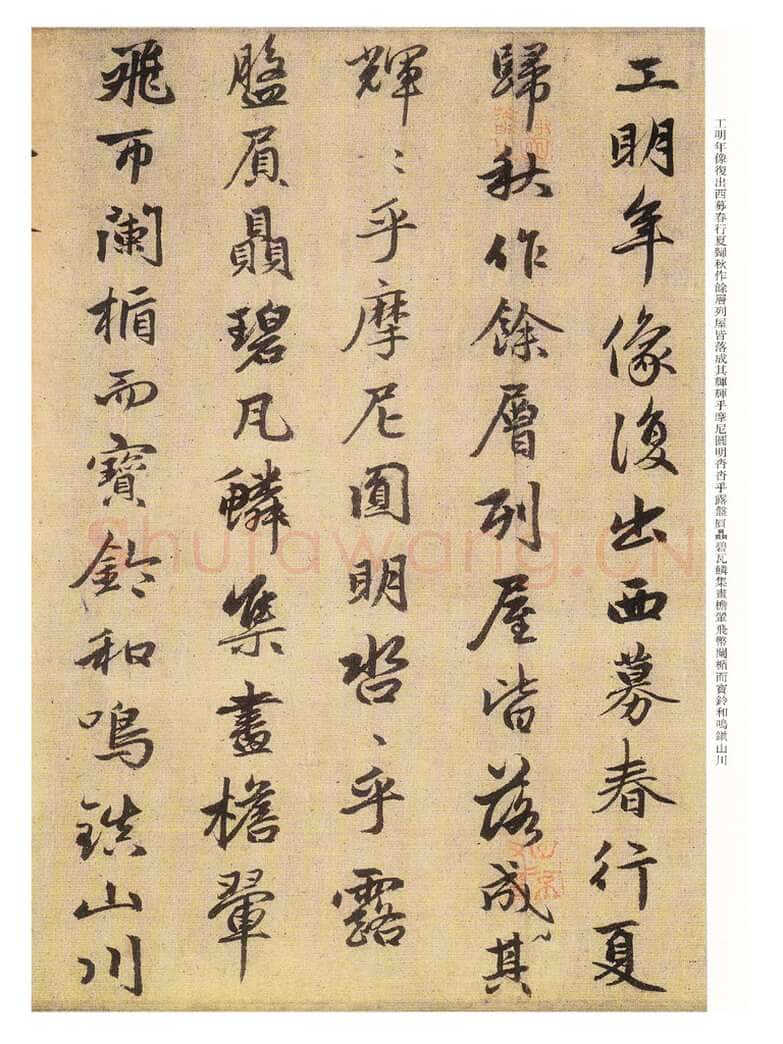 工明年像復出西募春行夏歸秋作餘層列屋皆落成其輝輝乎摩尼圓明沓沓乎露盤屓贔碧瓦鱗集畫檐翬飛幣闌楯而寶鈴和鳴鎮山川
工明年像復出西募春行夏
歸秋作餘層列屋皆落成其
輝〻乎摩尼圓明沓〻乎露
盤屓贔碧瓦鱗集畫檐翬
飛帀闌楯而寶鈴和鳴鎮山川
Shufawang.CN